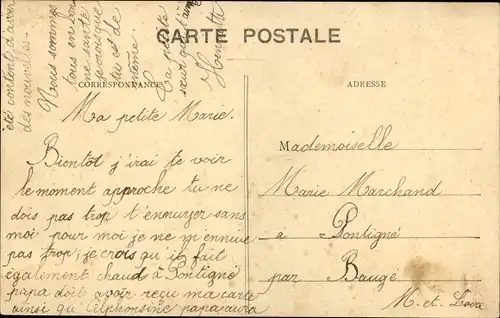 CARTE POSTALE
CORRESPONDANCE
ADRESSE
Ma petite Marie.
Bientôt j'irai te voir
le moment approche tu ne
dois pas trop t'ennuyer sans
moi pour moi je ne m'ennuie
pas trop; je crois qu'il fait
également chaud à Pontigné
papa doit avoir reçu ma carte
ainsi qu'Alphonsine papa aura
été content d'avoir
des nouvelles.
Nous sommes
tous en bonne santé
tu et de
même.
Ta petite
sœur qui t'aime
Henriette
Mademoiselle
Marie Marchand
à Pontigné
par Baugé
M-et-Loire